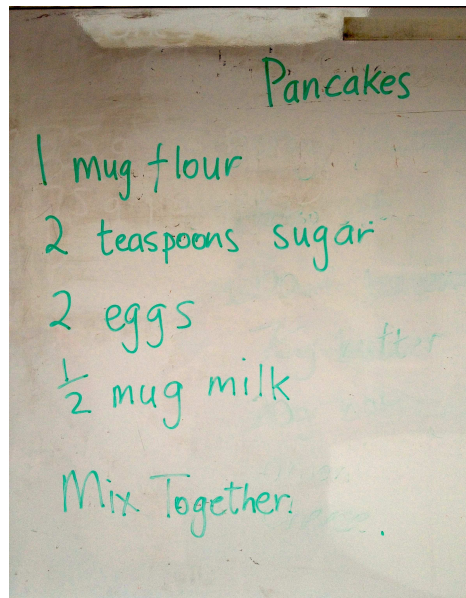 Pancakes
1 mug flour
2 teaspoons sugar
2 eggs
½ mug milk
Mix Together.